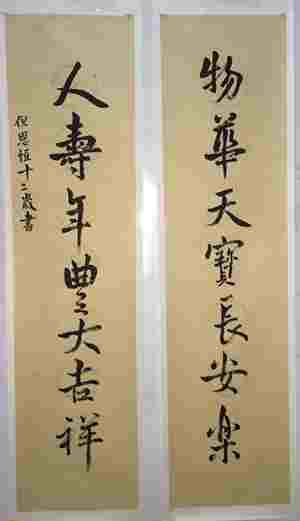 物華天寶長安樂
人壽年豐大吉祥
但恩恒十二歲書